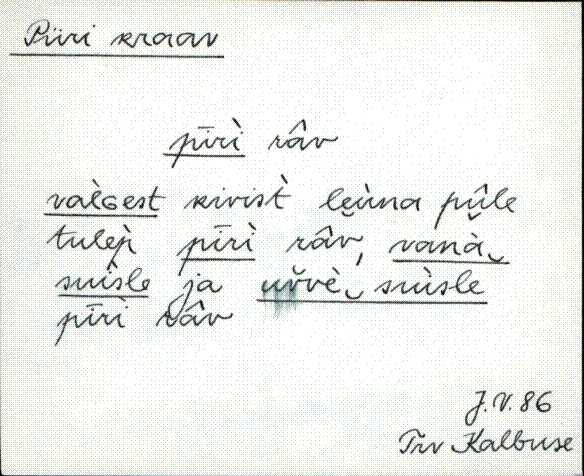 Piiri kraav
pīrì râv
vaèɢest kivist̀ leùna pûle
tulep̀ pīrì râv, vanà‿
suìsle ja ur̆vè‿ suìsle
pīrì râv
J.V. 86
Trv Kalbuse